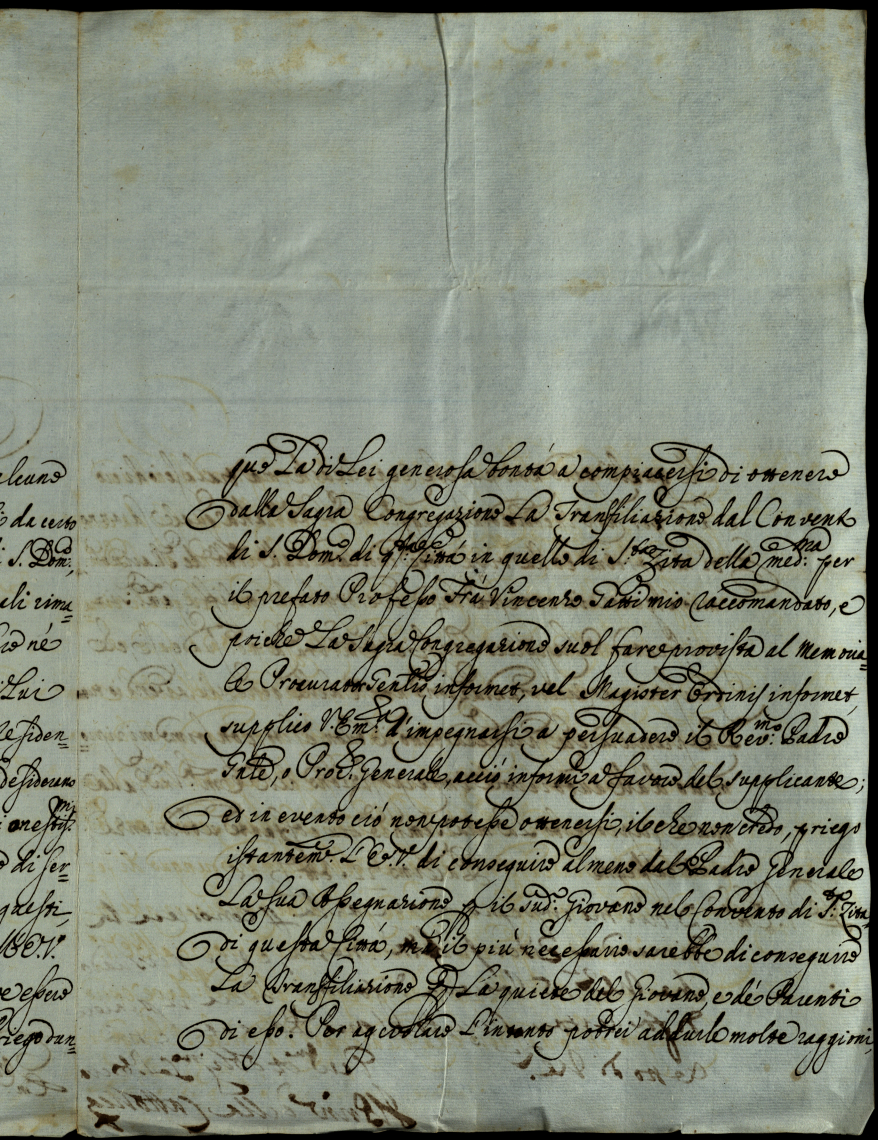 alcune
da certo
S. Dom:
ali rima=
né
Lui
residen=
desiderano
onestiss:mi
di ser=
questi
V.
essere
riego dun=
que La di Lei generosa bontá a compiacersi di ottenere
dalla Sagra Congregazione La Transfiliazione dal Convento
di S. Dom:o di q:sta Cittá in quello di S:ta Zita della med:ma per
il prefato Professo Frá Vincenzo Gatti mio raccomandato, e
poiche La Sagra Congregazione suol fare provista al Memoria=
le Procurator Gen:lis informet, vel Magister Ordinis informet,
supplico V. Em:a d'impegnarsi a persuadere il Rev:mo Padre
Gn̄le, o Proc: Generale, acció informi a favore del supplicante;
et in evento ció non potesse ottenersi, il che non credo, priego
istantem:e L'E. V. di conseguire almeno dal Padre Generale
La sua Assegnazione p il Sud:o Giovane nel Convento di S:ta Zita
di questa Cittá, má il piú necessario sarebbe di conseguire
La Transfiliazione p La quiete del Giovane, e dé Parenti
di esso. Per agevolare L'intento potrei addurle molte raggioni